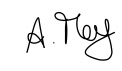 A. Mey